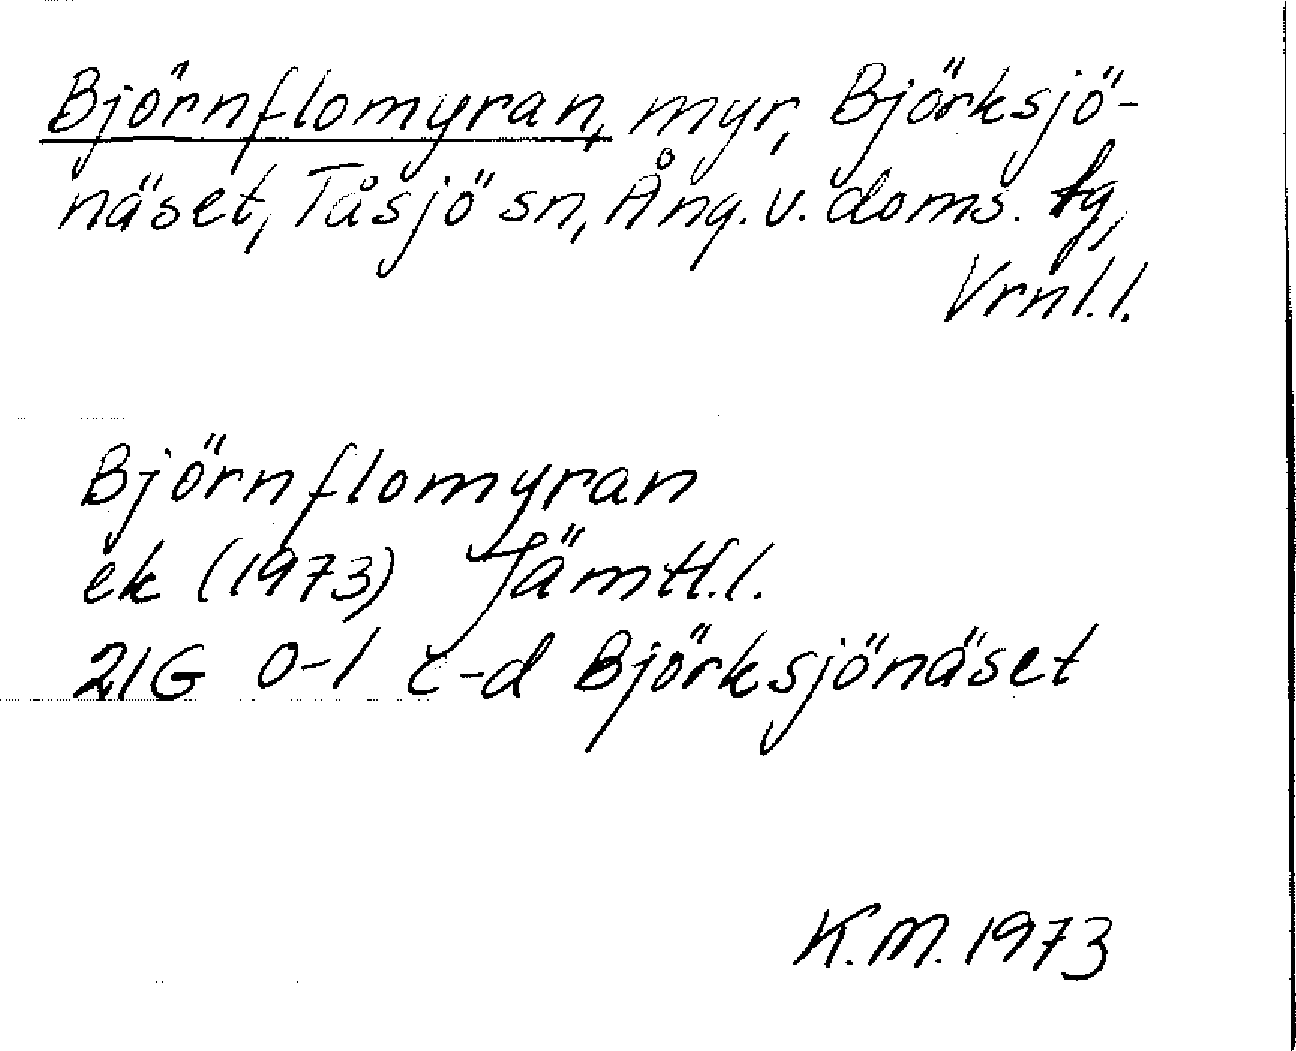 Björnflomyran, myr, Björksjö-
näset, Tåsjö sn, Ång. v. doms. tg,
Vrnl.l.
Björnflomyran
ek (1973) Jämtl.l.
21G 0-1 c-d Björksjönäset
K.M. 1973